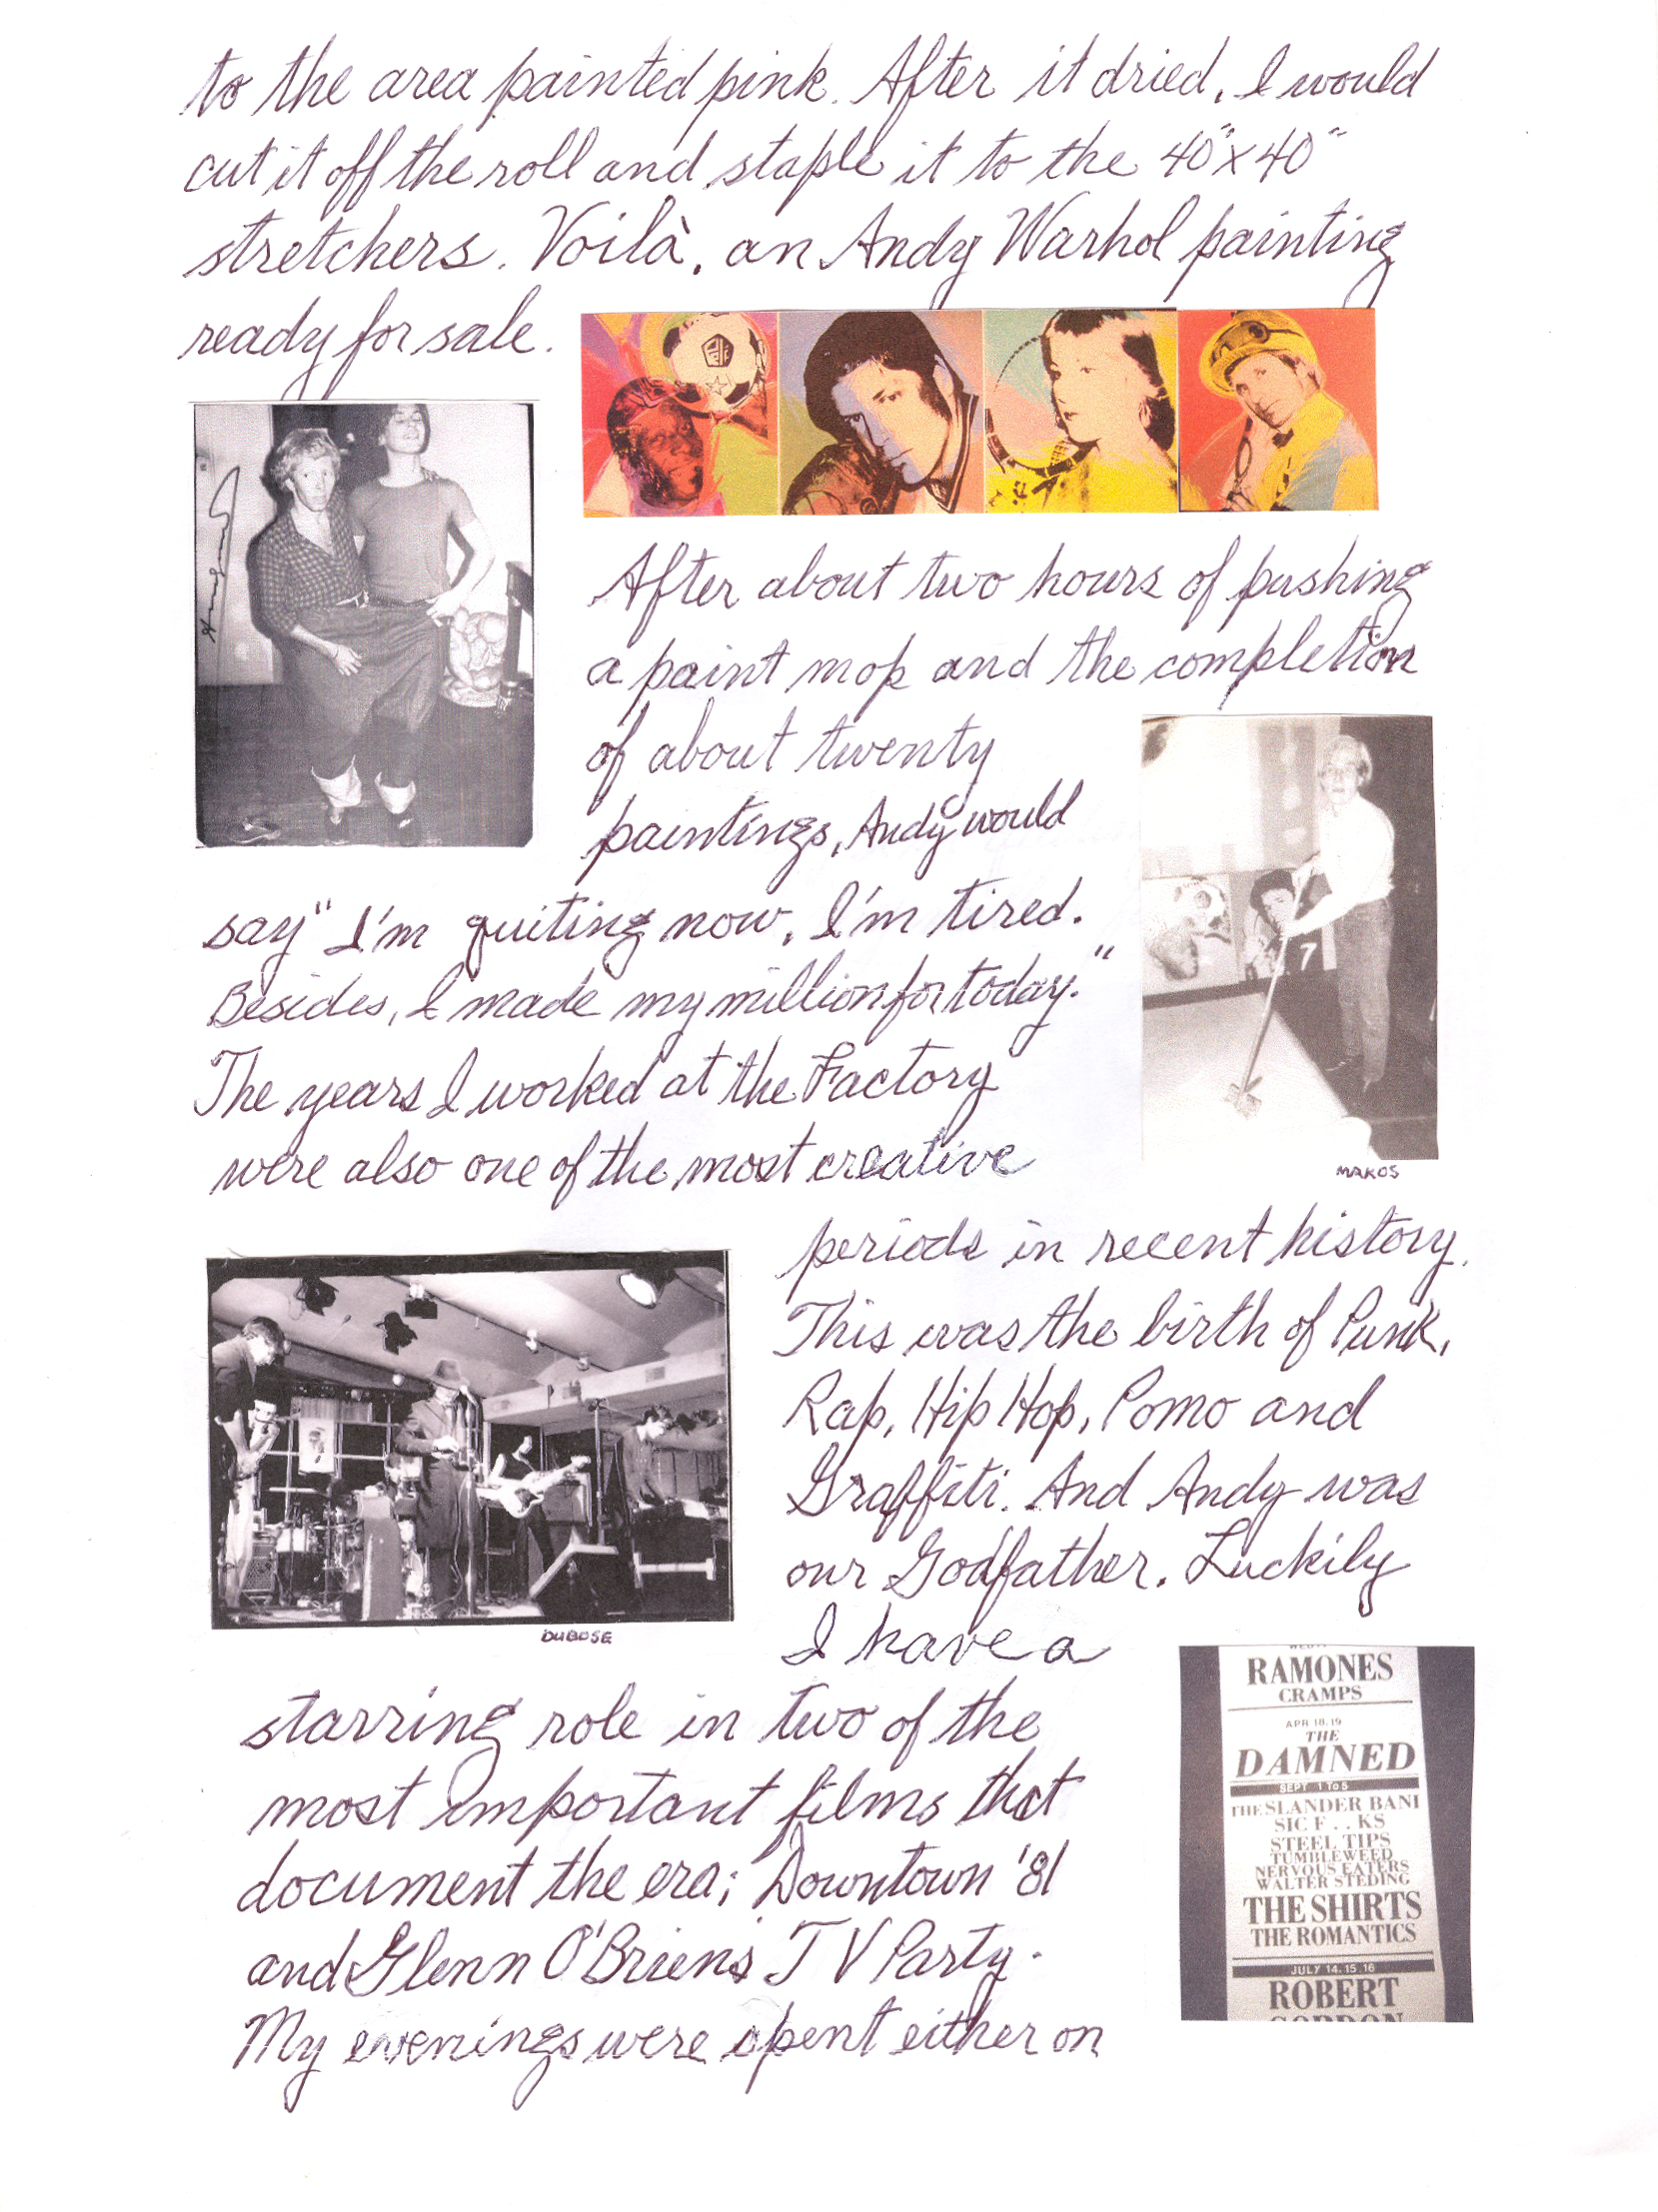 to the area painted pink. After it dried, I would
cut it off the roll and staple it to the 40"x40"
stretchers. Voilà, an Andy Warhol painting
ready for sale.
After about two hours of pushing
a paint mop and the completion
of about twenty
paintings, Andy would
say "I'm quiting now, I'm tired.
Besides, I made my million for today."
The years I worked at the Factory
were also one of the most creative
MAKOS
periods in recent history.
This was the birth of Punk,
Rap, Hip Hop, Pomo and
Graffiti. And Andy was
our Godfather. Luckily
DUBOSE
I have a
starring role in two of the
most important films that
document the era; Downtown '81
and Glenn O'Brien's TV Party.
My evenings were spent either on
RAMONES
CRAMPS
APR 18.19
THE
DAMNED
SEPT 1 To 5
THE SLANDER BANI
SIC F . . KS
STEEL TIPS
TUMBLEWEED
NERVOUS EATERS
WALTER STEDING
THE SHIRTS
THE ROMANTICS
JULY 14.15.16
ROBERT
GORDON
7